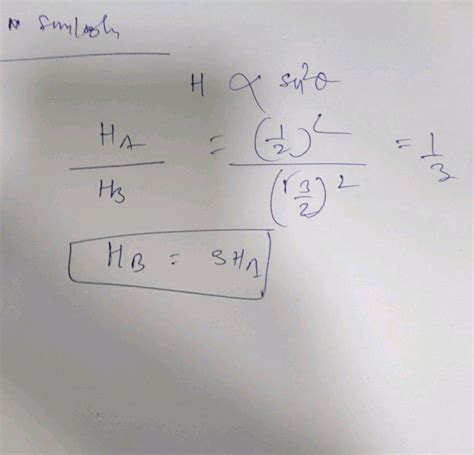 H ∝ sin²θ
H_A / H_B = (1/2)² / (√3/2)² = 1/3
H_B = 3H_A